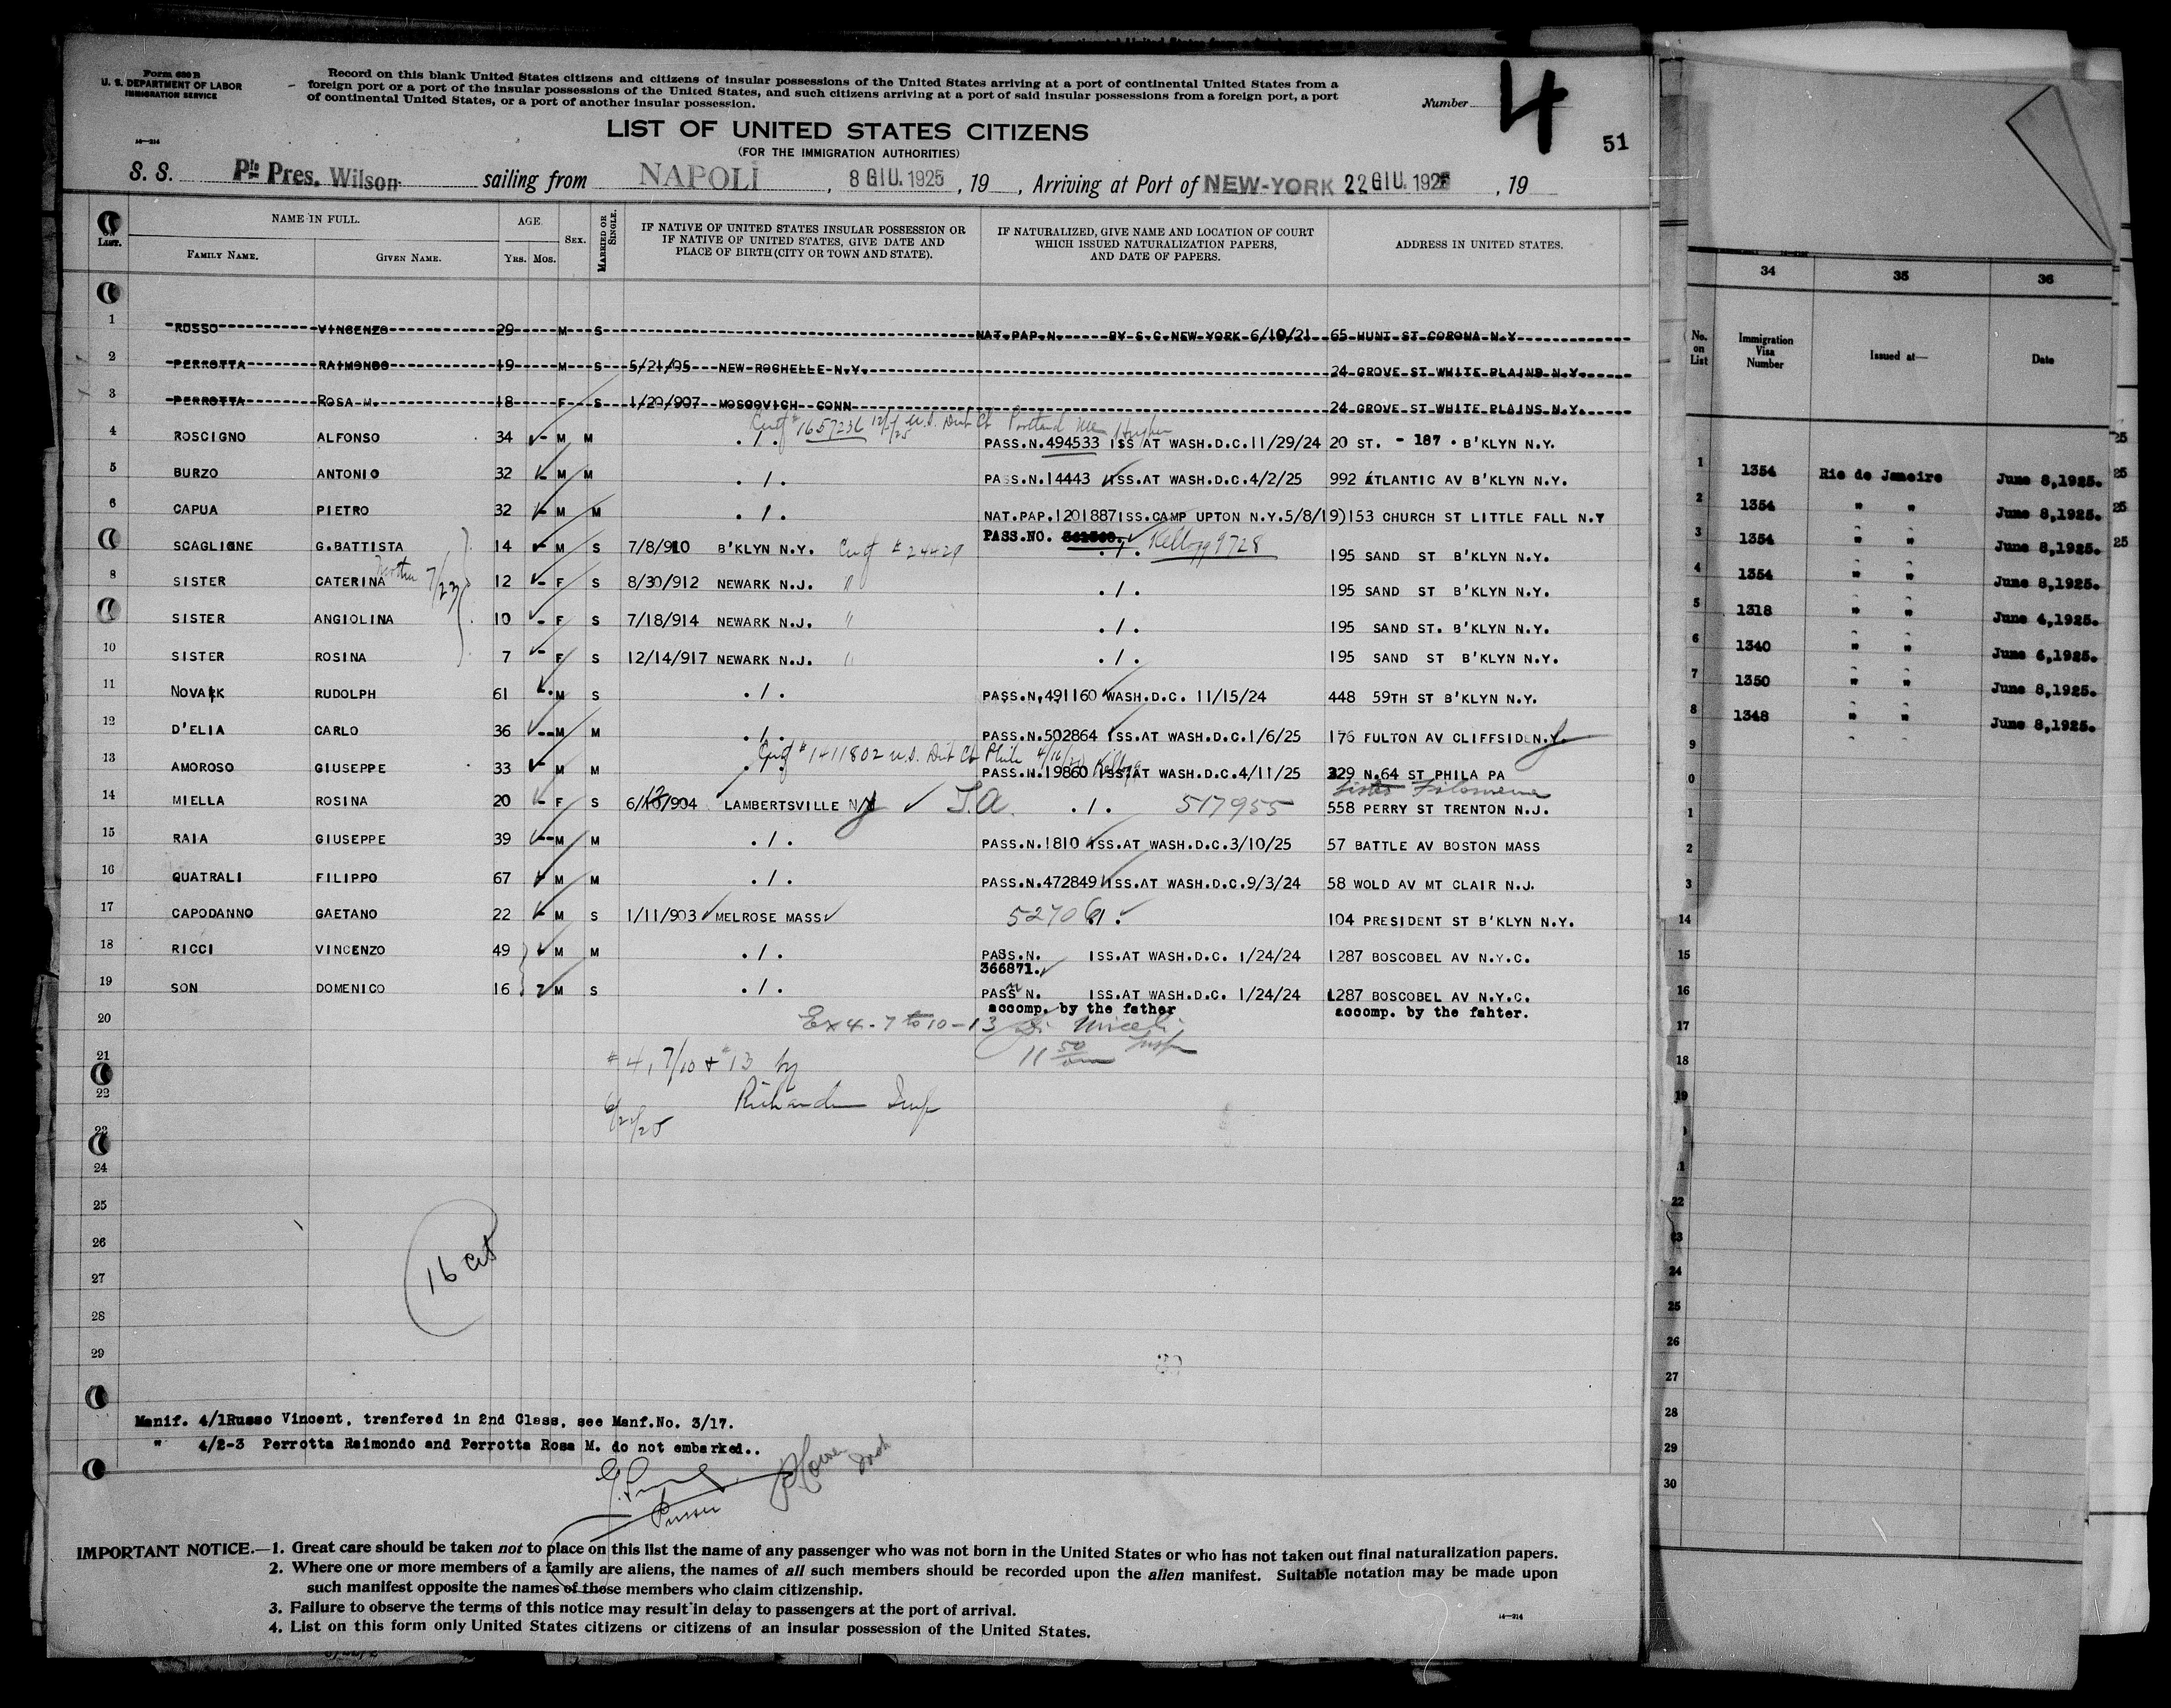 Form 630 B
U. S. DEPARTMENT OF LABOR
IMMIGRATION SERVICE
Record on this blank United States citizens and citizens of insular possessions of the United States arriving at a port of continental United States from a
foreign port or a port of the insular possessions of the United States, and such citizens arriving at a port of said insular possessions from a foreign port, a port
of continental United States, or a port of another insular possession.
Number 4
51
14—214
LIST OF UNITED STATES CITIZENS
(FOR THE IMMIGRATION AUTHORITIES)
S. S. Pte Pres. Wilson sailing from NAPOLI , 8 GIU. 1925 , 19 , Arriving at Port of NEW-YORK 22 GIU. 1925 , 19
LIST.
NAME IN FULL.
FAMILY NAME. GIVEN NAME.
AGE.
YRS. MOS.
SEX.
MARRIED OR SINGLE.
IF NATIVE OF UNITED STATES INSULAR POSSESSION OR
IF NATIVE OF UNITED STATES, GIVE DATE AND
PLACE OF BIRTH (CITY OR TOWN AND STATE).
IF NATURALIZED, GIVE NAME AND LOCATION OF COURT
WHICH ISSUED NATURALIZATION PAPERS,
AND DATE OF PAPERS.
ADDRESS IN UNITED STATES.
1 RUSSO VINCENZO 29 M S NAT.PAP.N. BY S.C.NEW YORK 6/10/21 65 HUNT ST CORONA N.Y
2 PERROTTA RAIMONDO 19 M S 5/21/05 NEW ROCHELLE N.Y. 24 GROVE ST WHITE PLAIND N.Y.
3 PERROTTA ROSA M. 18 F S 1/20/907 MOSCOVICH CONN 24 GROVE ST WHITE PLAINS N.Y.
#1657236 U.S. Dist Ct Portland Me
4 ROSCIGNO ALFONSO 34 M M ./. PASS.N.494533 ISS AT WASH.D.C.11/29/24 20 ST. - 187 . B'KLYN N.Y.
5 BURZO ANTONIO 32 M M ./. PASS.N.14443 ISS.AT WASH.D.C.4/2/25 992 ATLANTIC AV B'KLYN N.Y.
6 CAPUA PIETRO 32 M M ./. NAT.PAP.1201887 ISS.CAMP UPTON N.Y.5/8/19) 153 CHURCH ST LITTLE FALL N.Y
PASS.NO. Kellogg 9728
7 SCAGLIONE G.BATTISTA 14 M S 7/8/910 B'KLYN N.Y. ./. 195 SAND ST B'KLYN N.Y.
8 SISTER CATERINA 7/23 12 F S 8/30/912 NEWARK N.J. " ./. 195 SAND ST B'KLYN N.Y.
9 SISTER ANGIOLINA 10 F S 7/18/914 NEWARK N.J. " ./. 195 SAND ST. B'KLYN N.Y.
10 SISTER ROSINA 7 F S 12/14/917 NEWARK N.J. " ./. 195 SAND ST B'KLYN N.Y.
11 NOVAK RUDOLPH 61 M S ./. PASS.N.491160 WASH.D.C. 11/15/24 448 59TH ST B'KLYN N.Y.
12 D'ELIA CARLO 36 M M ./. PASS.N.502864 ISS.AT WASH.D.C.1/6/25 176 FULTON AV CLIFFSIDE N.J.
#1411802 U.S. Dist Ct Phila
13 AMOROSO GIUSEPPE 33 M M ./. PASS.N.19860 ISS.AT WASH.D.C.4/11/25 229 N.64 ST PHILA PA
sister Filomena
14 MIELLA ROSINA 20 F S 6/12/904 LAMBERTSVILLE N.J ./. 517955 558 PERRY ST TRENTON N.J.
15 RAIA GIUSEPPE 39 M M ./. PASS.N.1810 ISS.AT WASH.D.C.3/10/25 57 BATTLE AV BOSTON MASS
16 QUATRALI FILIPPO 67 M M ./. PASS.N.472849 ISS.AT WASH.D.C.9/3/24 58 WOLD AV MT CLAIR N.J.
17 CAPODANNO GAETANO 22 M S 1/11/903 MELROSE MASS 104 PRESIDENT ST B'KLYN N.Y.
18 RICCI VINCENZO 49 M M ./. PASS.N. ISS.AT WASH.D.C. 1/24/24 1287 BOSCOBEL AV N.Y.C.
366871.
19 SON DOMENICO 16 M S ./. PASS N. ISS.AT WASH.D.C. 1/24/24 1287 BOSCOBEL AV N.Y.C.
accomp. by the father accomp. by the fahter.
20 Ex 4 - 7 to 10 - 13
21 #4, 7/10 + #13 by
11 50 am
22 Richards Insp
6/22/25
23
24
25
26
16 cit
27
28
29
Manif. 4/1Russo Vincent, trenfered in 2nd Class, see Manf.No. 3/17.
" 4/2-3 Perrotta Raimondo and Perrotta Rosa M. do not embarked..
Purser
IMPORTANT NOTICE.—1. Great care should be taken not to place on this list the name of any passenger who was not born in the United States or who has not taken out final naturalization papers.
2. Where one or more members of a family are aliens, the names of all such members should be recorded upon the alien manifest. Suitable notation may be made upon
such manifest opposite the names of those members who claim citizenship.
3. Failure to observe the terms of this notice may result in delay to passengers at the port of arrival.
4. List on this form only United States citizens or citizens of an insular possession of the United States.
14—214
34 35 36
No. on List
Immigration Visa Number
Issued at—
Date
25
1 1354 Rio de Janeiro June 8,1925. 25
2 1354 " " June 8,1925. 25
3 1354 " " June 8,1925. 25
4 1354 " " June 8,1925.
5 1318 " " June 4,1925.
6 1340 " " June 6,1925.
7 1350 " " June 8,1925.
8 1348 " " June 8,1925.
9
0
1
2
3
14
15
16
17
18
19
1
22
23
24
25
26
27
28
29
30